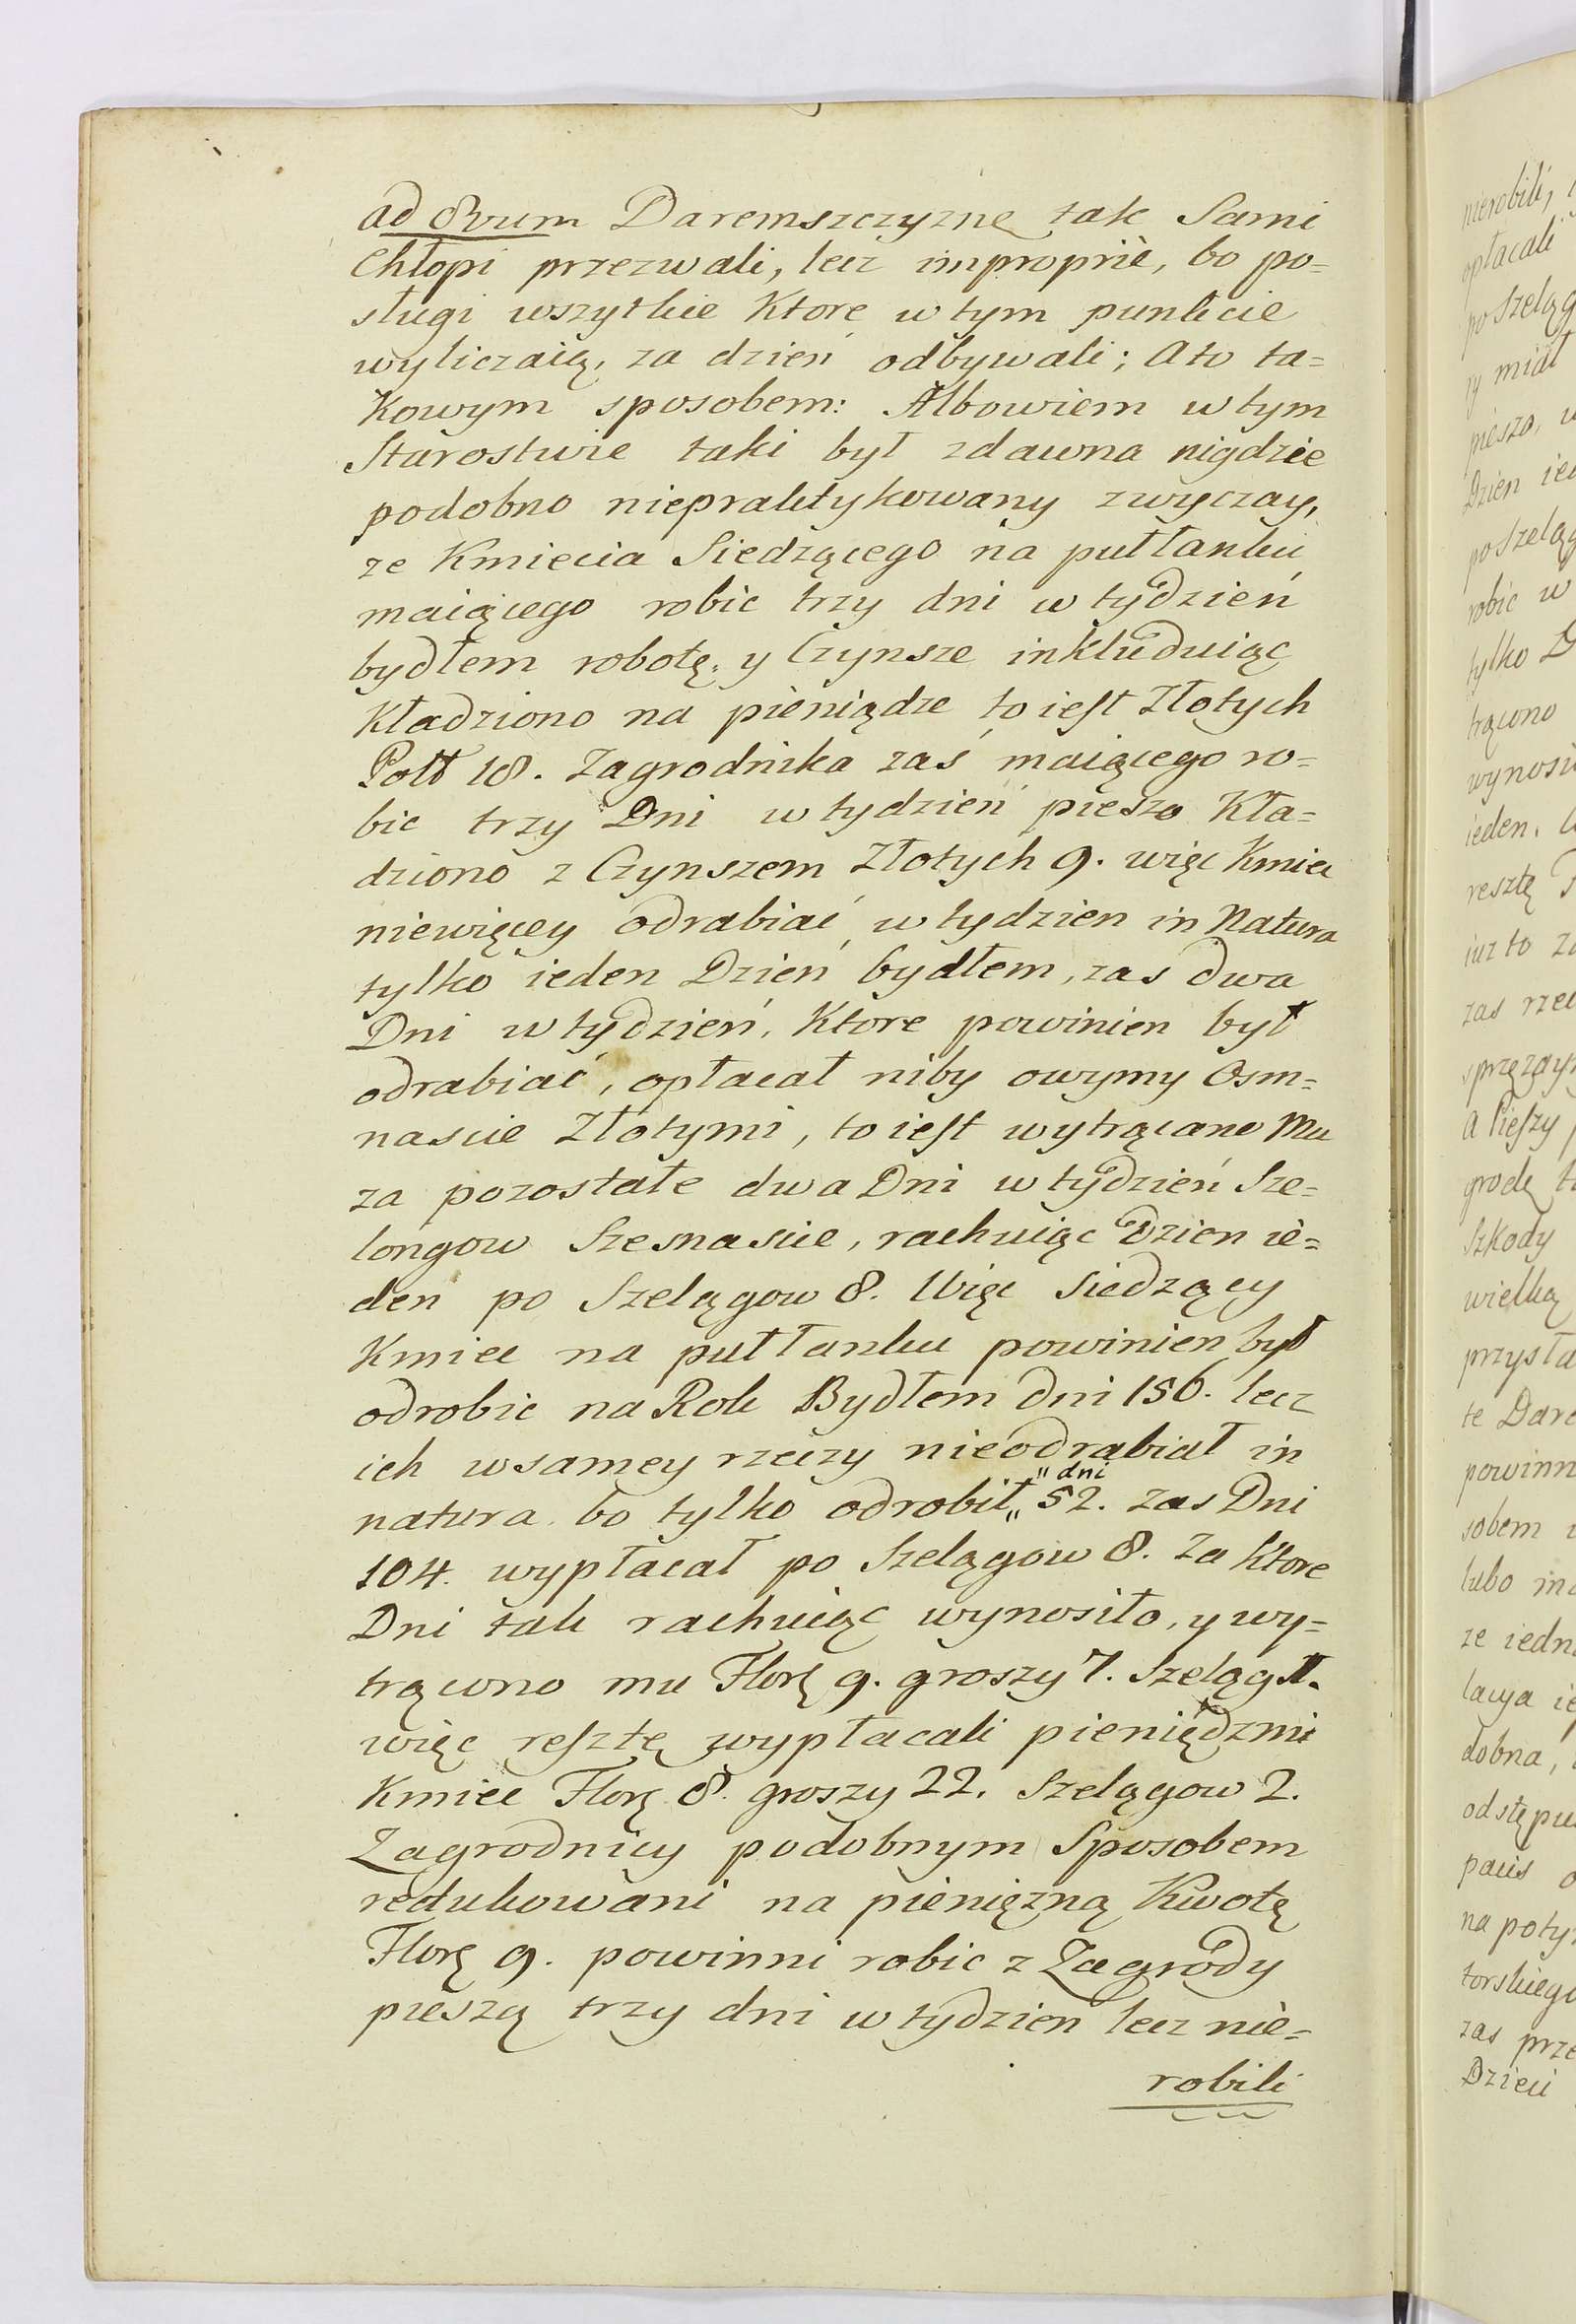 ad 8vum Daremszczyznę tak Sami
Chłopi przezwali, lecz impropriè, bo po=
sługi wszytkie Ktore w tym punkcie
wyliczaią, za dzień odbywali; A to ta=
Kowym sposobem: Albowiem w tym
Starostwie taki był zdawna nigdzie
podobno niepraktykowany zwyczay,
ze Kmiecia Siedzącego na pułłanku
maiącego robic trzy dni w tydzień
bydłem robotę, y Czynsze inkluduiąc
Kładziono na pieniądze to iest Złotych
Polł 18. Zagrodnika zaś maiącego ro=
bic trzy Dni w tydzień pieszo Kła=
dziono z Czynszem Złotych 9. więc Kmiec
niewięcey odrabiać w tydzien in Natura
tylko ieden Dzień bydłem, zas dwa
Dni w tydzień, Ktore powinien był
odrabiać, opłacał niby owymy Osm=
nascie Złotymi, to iest wytrącano Mu
za pozostałe dwa Dni w tydzień Sze=
longow Szesnascie, rachuiąc Dzien ie=
den po Szelągow 8. Więc Siedzący
Kmiec na pułłanku powinien był
odrobic na Rok Bydłem dni 156. lecz
ich w samey rzeczy nieodrabiał in
natura bo tylko odrobił „ dni „ 52. zas Dni
104. wypłacał po Szelągow 8. Za Ktore
Dni tak rachuiąc wynosiło, y wy=
trącono mu Florę 9. groszy 7. Szeląg 1.
więc resztę wypłacali pieniędzmi
Kmiec Florę 8. groszy 22. Szelągow 2.
Zagrodnicy podobnym Sposobem
redukowani na pienięzną Kwotę
Florę 9. powinni robic z Zagrody
pieszą trzy dni w tydzien lecz nie=
robili
nierobili,
opłacali
po Szeląg
ry miał
pieszo,
Dzien ied
po szeląg
robic w
tylko D
trącono
wynosi
ieden.
resztę
iuz to
zas rzec
sprzęzay
A Pieszy
grodę
Szkody
wielką
przysta
te Dare
powinn
sobem
lubo
ze iedn
lacya
dobna,
odstępu
pacis
na poty
torskiego
zas prze
Dzieci